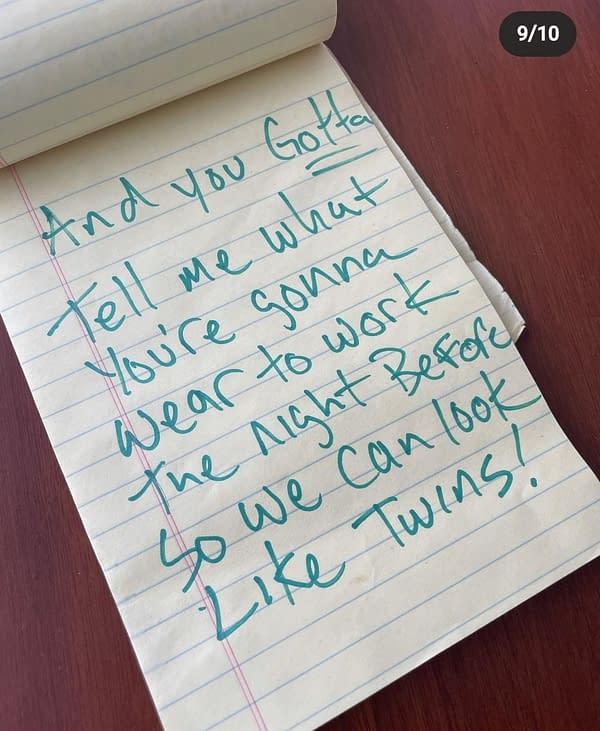 9/10
And you Gotta
Tell me what
You're gonna
wear to work
the night Before
so we can look
Like Twins!